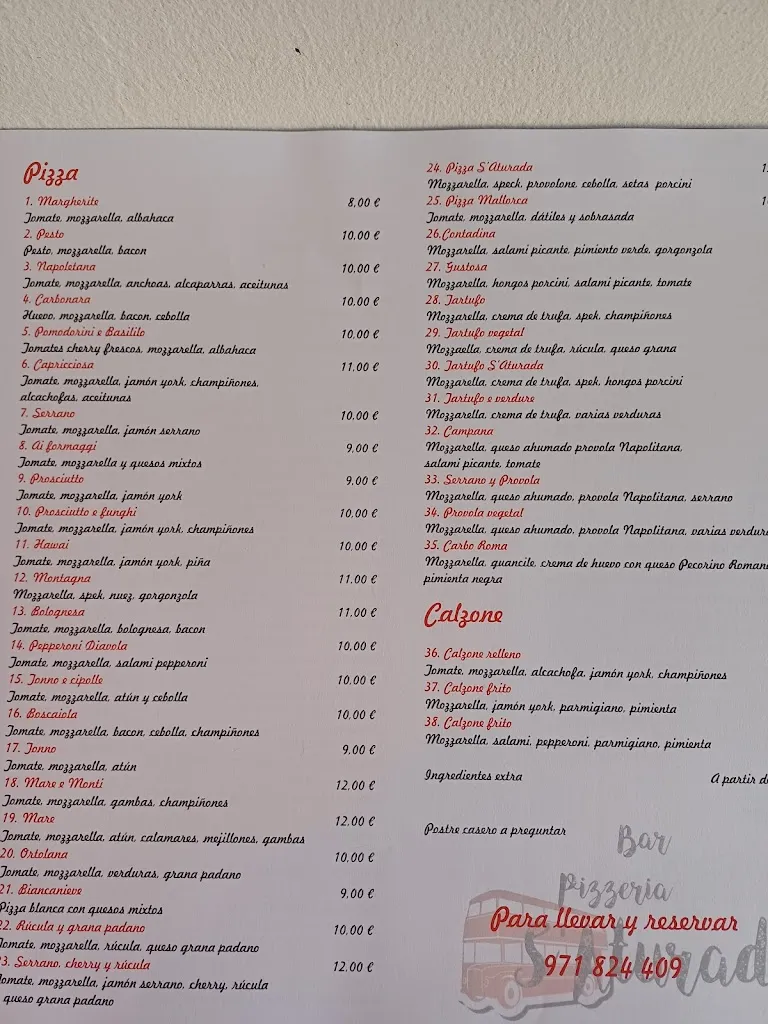 Pizza
1. Margherite 8,00 €
Tomate, mozzarella, albahaca
2. Pesto 10.00 €
Pesto, mozzarella, bacon
3. Napoletana 10.00 €
Tomate, mozzarella, anchoas, alcaparras, aceitunas
4. Carbonara 10.00 €
Huevo, mozzarella, bacon, cebolla
5. Pomodorini e Basililo 10,00 €
Tomates cherry frescos, mozzarella, albahaca
6. Capricciosa 11.00 €
Tomate, mozzarella, jamón york, champiñones,
alcachofas, aceitunas
7. Serrano 10.00 €
Tomate, mozzarella, jamón serrano
8. Ai formaggi 9,00 €
Tomate, mozzarella y quesos mixtos
9. Prosciutto 9.00 €
Tomate, mozzarella, jamón york
10. Prosciutto e funghi 10,00 €
Tomate, mozzarella, jamón york, champiñones
11. Hawai 10,00 €
Tomate, mozzarella, jamón york, piña
12. Montagna 11.00 €
Mozzarella, spek, nuez, gorgonzola
13. Bolognesa 11,00 €
Tomate, mozzarella, bolognesa, bacon
14. Pepperoni Diavola 10.00 €
Tomate, mozzarella, salami pepperoni
15. Tonno e cipolle 10.00 €
Tomate, mozzarella, atún y cebolla
16. Boscaiola 10,00 €
Tomate, mozzarella, bacon, cebolla, champiñones
17. Tonno 9.00 €
Tomate, mozzarella, atún
18. Mare e Monti 12,00 €
Tomate, mozzarella, gambas, champiñones
19. Mare 12.00 €
Tomate, mozzarella, atún, calamares, mejillones, gambas
20. Ortolana 10,00 €
Tomate, mozzarella, verduras, grana padano
21. Biancanieve 9,00 €
Pizza blanca con quesos mixtos
22. Rúcula y grana padano 10,00 €
Tomate, mozzarella, rúcula, queso grana padano
23. Serrano, cherry y rúcula 12.00 €
Tomate, mozzarella, jamón serrano, cherry, rúcula
queso grana padano
24. Pizza S'Aturada
Mozzarella, speck, provolone, cebolla, setas porcini
25. Pizza Mallorca
Tomate, mozzarella, dátiles y sobrasada
26.Contadina
Mozzarella, salami picante, pimiento verde, gorgonzola
27. Gustosa
Mozzarella, hongos porcini, salami picante, tomate
28. Tartufo
Mozzarella, crema de trufa, spek, champiñones
29. Tartufo vegetal
Mozzaella, crema de trufa, rúcula, queso grana
30. Tartufo S'Aturada
Mozzarella, crema de trufa, spek, hongos porcini
31. Tartufo e verdure
Mozzarella, crema de trufa, varias verduras
32. Campana
Mozzarella, queso ahumado provola Napolitana,
salami picante, tomate
33. Serrano y Provola
Mozzarella, queso ahumado, provola Napolitana, serrano
34. Provola vegetal
Mozzarella, queso ahumado, provola Napolitana, varias verdura
35. Carbo Roma
Mozzarella, guancile, crema de huevo con queso Pecorino Romano
pimienta negra
Calzone
36. Calzone relleno
Tomate, mozzarella, alcachofa, jamón york, champiñones
37. Calzone frito
Mozzarella, jamón york, parmigiano, pimienta
38. Calzone frito
Mozzarella, salami, pepperoni, parmigiano, pimienta
Ingredientes extra A partir de
Postre casero a preguntar
Bar
Pizzeria
S'Aturad
Para llevar y reservar
971 824 409